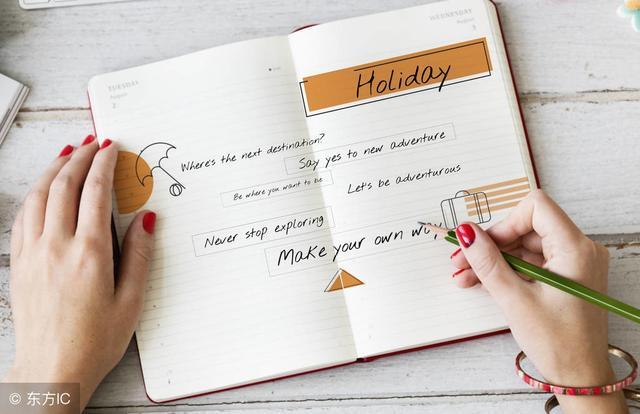 TUESDAY
August
2
Where's the next destination?
Be where you want to be
Never stop exploring
WEDNESDAY
August
3
Holiday
Say yes to new adventure
Let's be adventurous
Make your own way
© 东方IC